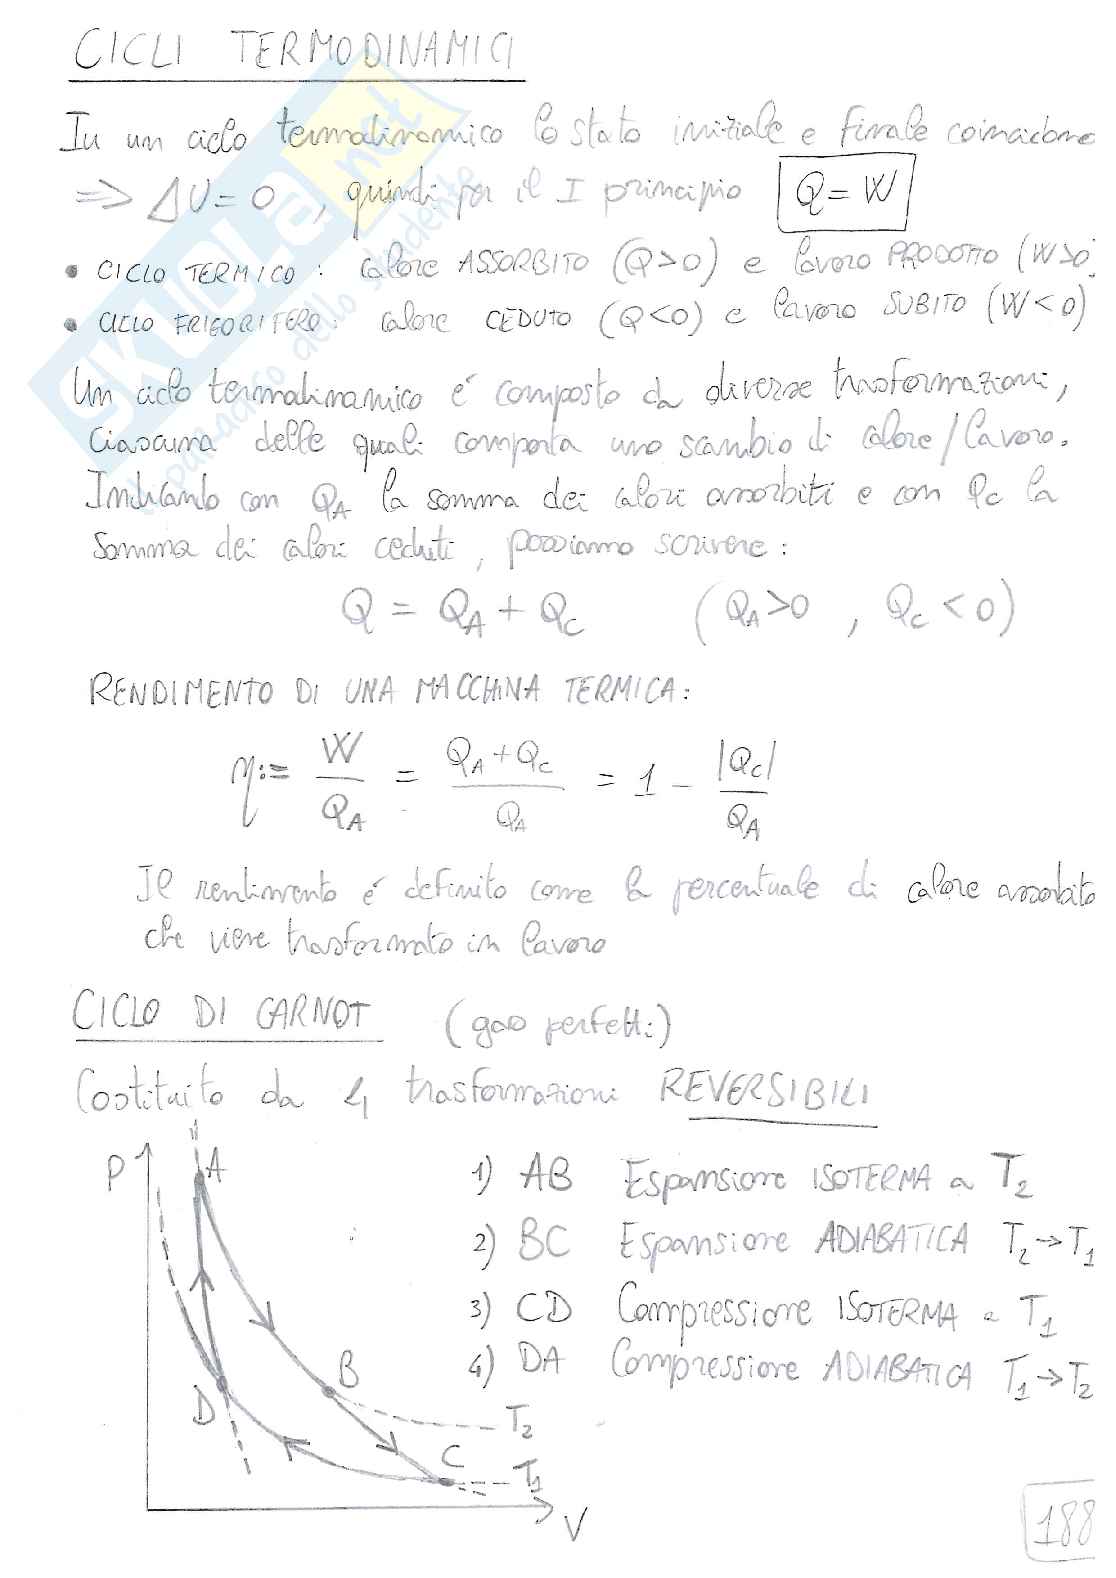 CICLI TERMODINAMICI
In un ciclo termodinamico lo stato iniziale e finale coincidono
=> ΔU = 0 , quindi per il I principio Q = W
• CICLO TERMICO : calore ASSORBITO (Q>0) e lavoro PRODOTTO (W>0)
• CICLO FRIGORIFERO : calore CEDUTO (Q<0) e lavoro SUBITO (W<0)
Un ciclo termodinamico é composto da diverse trasformazioni,
ciascuna delle quali comporta uno scambio di calore/lavoro.
Indicando con QA la somma dei calori assorbiti e con QC la
somma dei calori ceduti, possiamo scrivere :
Q = QA + QC (QA>0 , QC<0)
RENDIMENTO DI UNA MACCHINA TERMICA :
η := W/QA = (QA + QC)/QA = 1 - |QC|/QA
Il rendimento é definito come la percentuale di calore assorbito
che viene trasformato in lavoro
CICLO DI CARNOT (gas perfetti)
Costituito da 4 trasformazioni REVERSIBILI
P A
B
D
C
T2
T1
V
1) AB Espansione ISOTERMA a T2
2) BC Espansione ADIABATICA T2 → T1
3) CD Compressione ISOTERMA a T1
4) DA Compressione ADIABATICA T1 → T2
188
SKUOLA.net
il paradiso dello studente